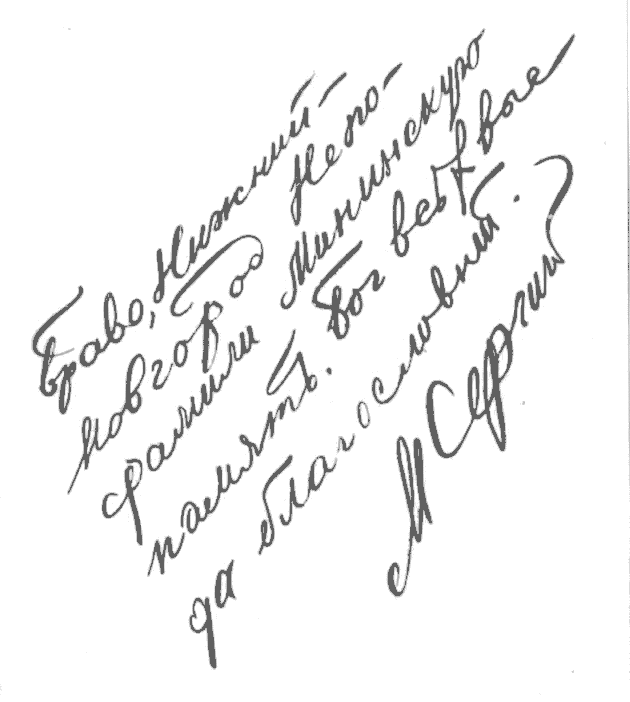 Браво, Нижний-
новгород Непо-
срамили Мининскую
память. Бог
да благословит.
М Сергий